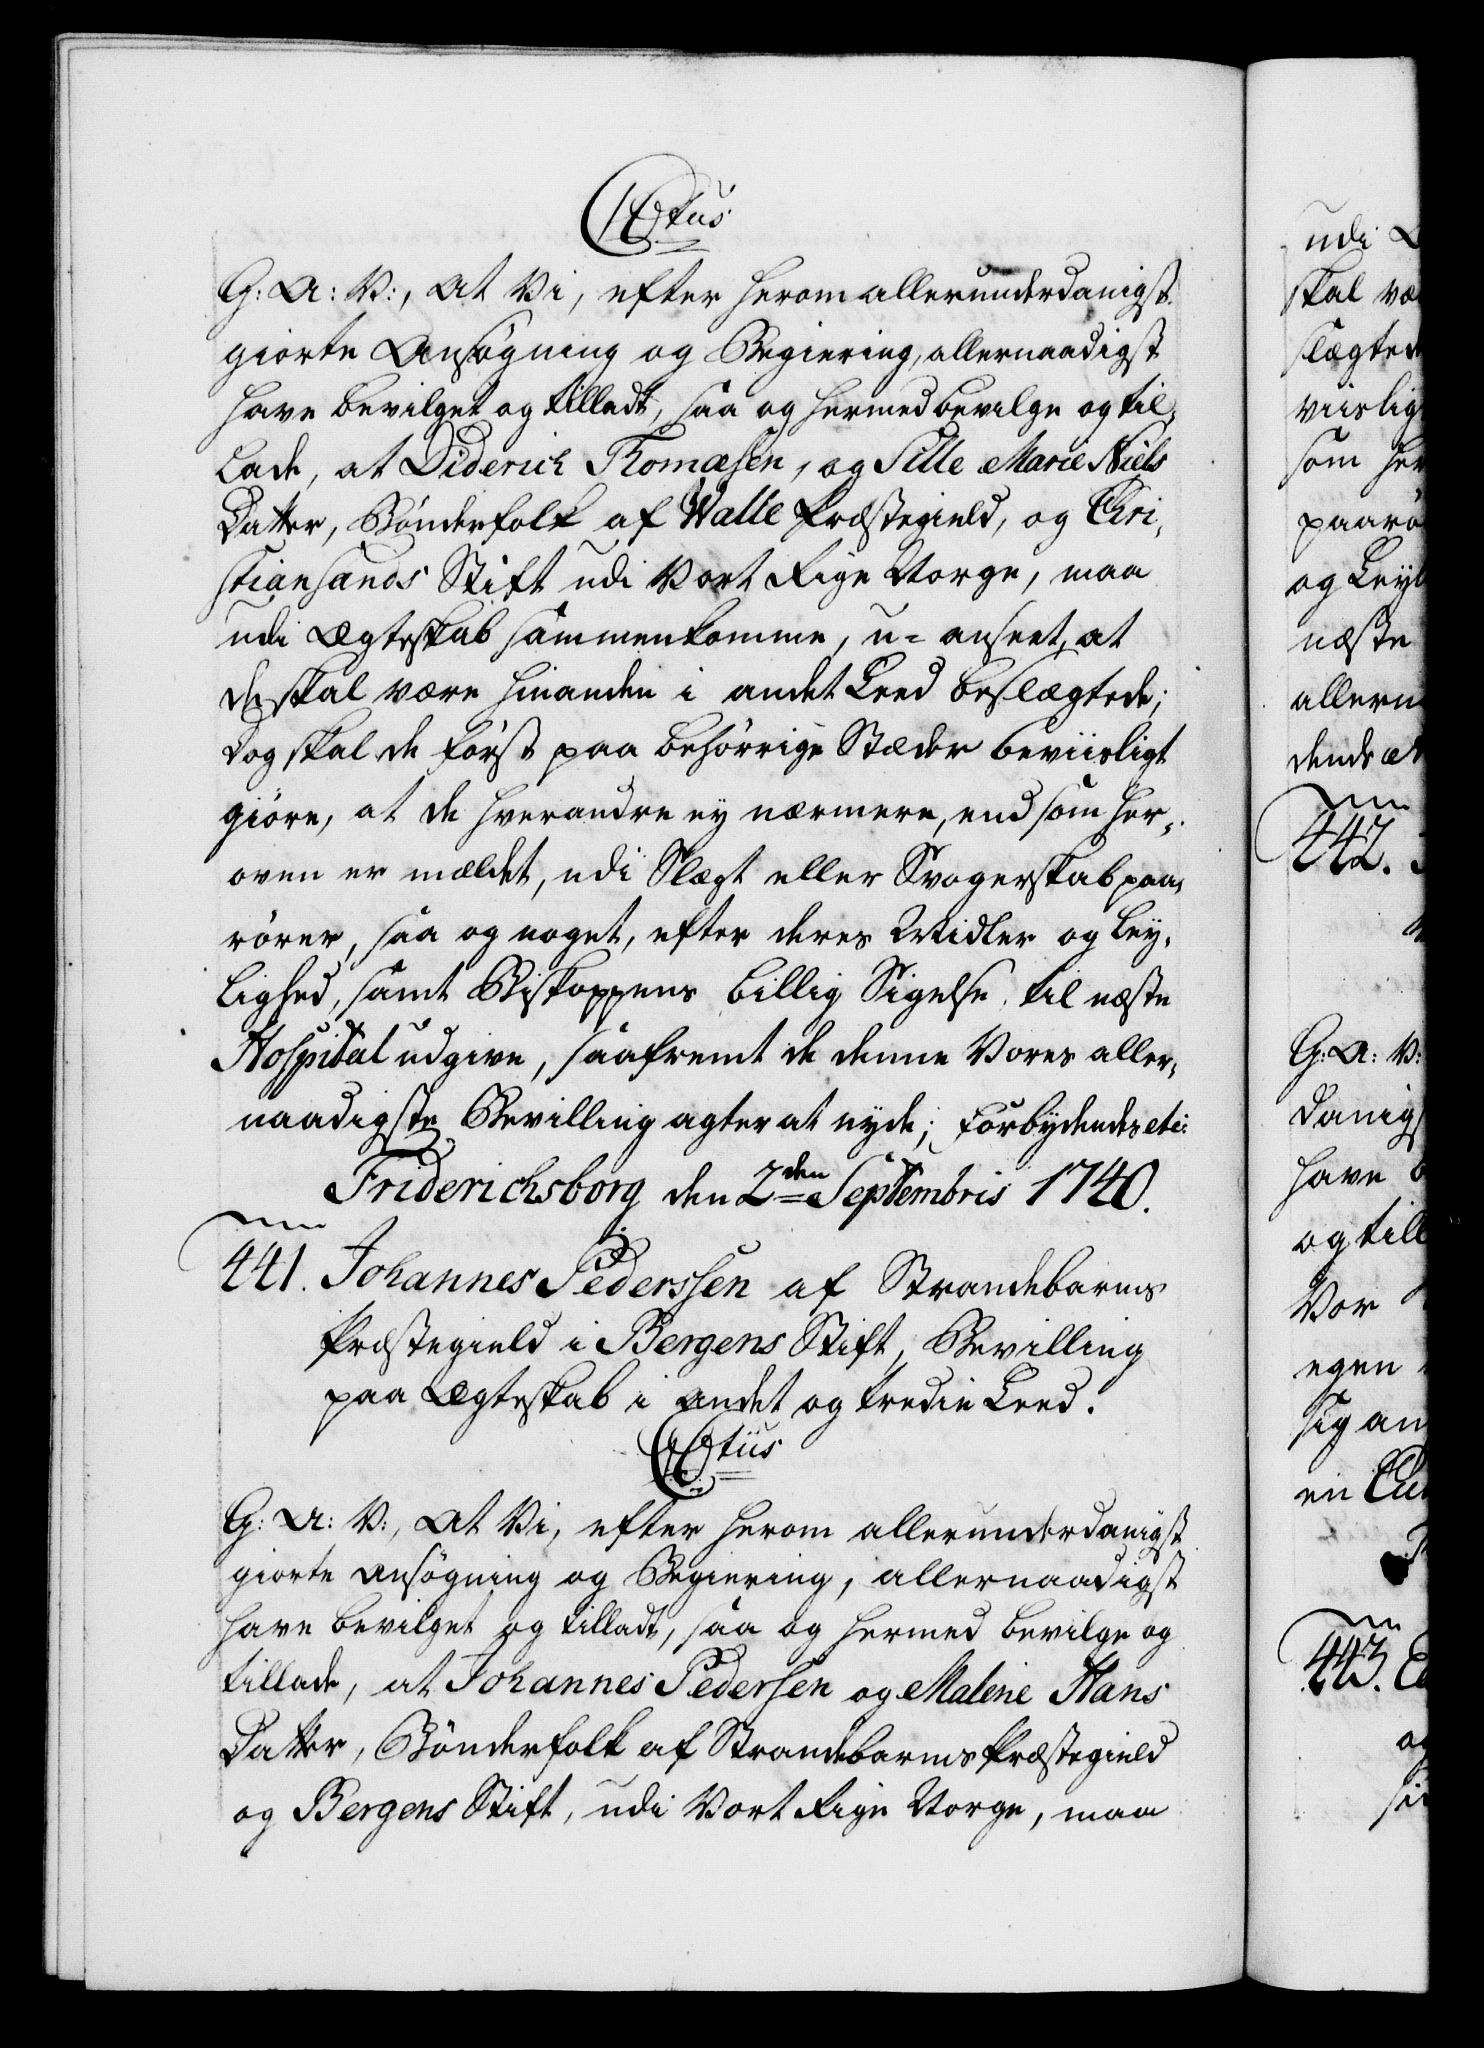 C6tus
G: A: V:, At Vi, efter herom allerunderdanigst
giorte Ansøgning og Begiering, allernaadigst
have bevilget og tilladt, saa og hermed bevilge og til,
lade, at Diderich Thomæsen, og Sille Marie Niels
Datter, Bønderfolk af Walle Præstegield, og Chri,
stiansands Stift udi Vort Rige Norge, maa
udi Ægteskab sammenkomme, u-anseet, at
de skal være hinanden i andet Leed beslægtede;
Dog skal de først paa behørrige Stæder beviisligt
giøre, at de hverandre ey nærmere, end som her,
oven er mældet, udi Slægt eller Svogerskab paa,
rører, saa og noget, efter deres Midler og Ley,
lighed, samt Biskoppens billig Sigelse til næste
Hospital udgive, saafremt de denne Vores aller,
naadigste Bevilling agter at nyde; Forbydendes etc:
Friderichsborg den 2den Septembris 1740.
441. Johannes Pederssen af Strandebarms
Præstegield i Bergens Stift, Bevilling
paa Ægteskab i andet og tredie Leed.
G: A: V:, At Vi, efter herom allerunderdanigst
giorte Ansøgning og Begiering, allernaadigst
have bevilget og tilladt, saa og hermed bevilge og
tillade, at Johannes Pedersen og Malene Hans
Datter, Bønderfolk af Strandebarms Præstegield
og Bergens Stift, udi Vort Rige Norge, maa
udi
skal væ
slægted
viislig
som her
paarø
og Leyl
næste
allern
dendes et
442.
G: A: V:
danigs
have b
og till
Vor
egen
sig an
en
443.
og